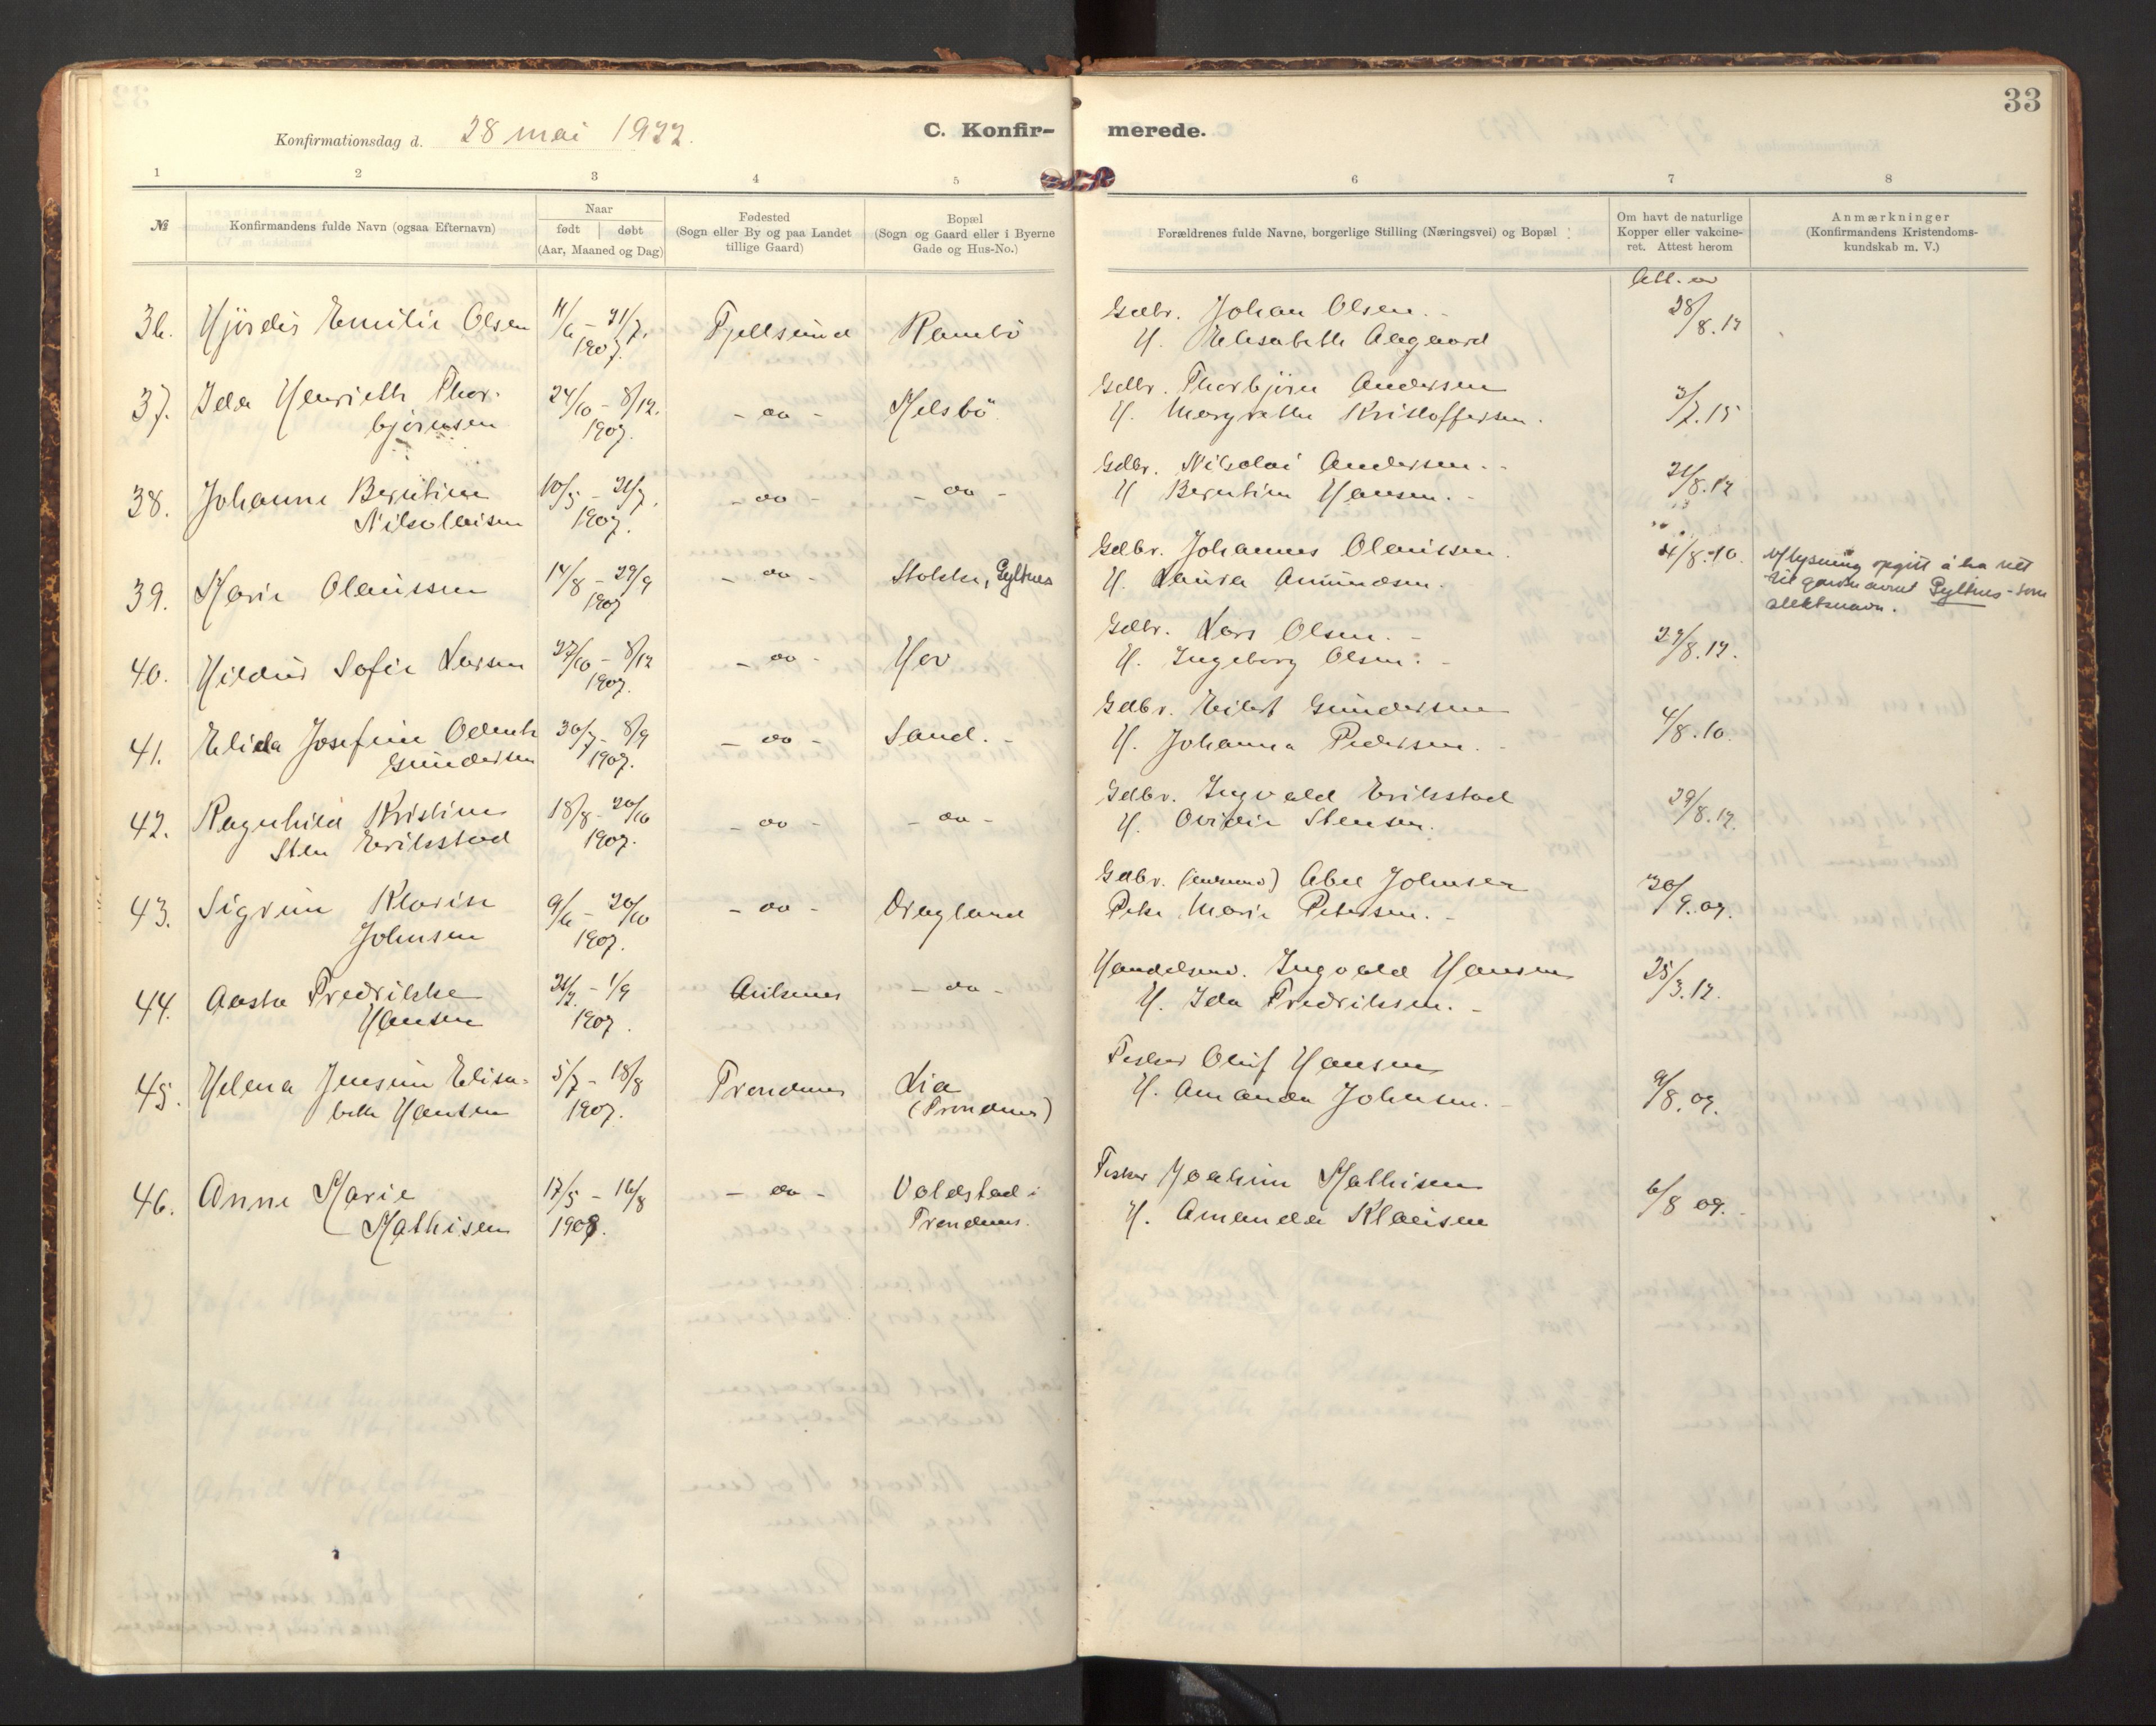 33
Konfirmationsdag d. 28 mai 1922.
C. Konfir-
merede.
1 2 3 4 5 6 7 8
№
Konfirmandens fulde Navn (ogsaa Efternavn)
Naar
født døbt
(Aar, Maaned og Dag)
Fødested
(Sogn eller By og paa Landet
tillige Gaard)
Bopæl
(Sogn og Gaard eller i Byerne
Gade og Hus-No.)
Forældrenes fulde Navne, borgerlige Stilling (Næringsvei) og Bopæl
Om havt de naturlige
Kopper eller vakcine-
ret. Attest herom
Anmærkninger
(Konfirmandens Kristendoms-
kundskab m. V.)
Att. av
36. Hjørdis Emilie Olsen 11/6 - 21/7. Fjellsund Rambö Gdbr. Johan Olsen. 28/8.12
1907. H. Elisabeth Aagaard
37. Ida Henriette Thor- 24/10 - 8/12. - do - Melsbö Gdbr. Thorbjörn Andersen 3/7.15
björnsen 1907. H. Margrethe Kristoffersen.
38. Johanne Berntine 10/5 - 21/7. - do - - do - Gdbr. Nikolai Andersen. 21/8.12
Nikolaisen 1907. H Berntine Hansen.
39. Marie Olaussen 14/8 - 29/9 - do - Stokke, Gyltnes Gdbr. Johannes Olaussen. 4/8.10.
1907 H. Laura Amundsen.
opgitt å ha rett
til gardsnavnet Gyltnes - som
slektsnavn.
40. Hildur Sofie Larsen 27/10 - 8/12 - do - Hov Gdbr. Lars Olsen. 29/8.12.
1907. H. Ingeborg Olsen.
41. Elida Josefine Odente 30/7 - 8/9 - do - Sand. Gdbr. Eilert Gundersen 4/8.10.
Gundersen 1907. H. Johanna Pedersen.
42. Ragnhild Kristine 18/8 - 20/10 - do - - do - Gdbr. Ingvald Eriksstad 29/8.12.
Sten Eriksstad 1907. H. Ovidie Stensen.
43. Sigrun Klarise 9/6 - 20/10 - do - Dragland Gdbr. Abel Johnsen 30/9.09.
Johnsen 1907. Marie Petersen.
44. Aasta Fredrikke - 1/9 - do - Handelsmd. Ingvald Hansen 25/3.12.
Hansen 1907. H. Ida Fredriksen.
45. Helena Jensine Elisa- 5/7 - 18/8 Trondenes Lia Fisker Oluf Hansen 9/8.09.
beth Hansen 1907. (Trondenes) H. Amanda Johnsen.
46. Anne Marie 17/5 - 16/8 - do - Voldstad i Fisker Joakim Mathisen 6/8 09.
Mathisen 1908. Trondenes. H. Amanda Klausen